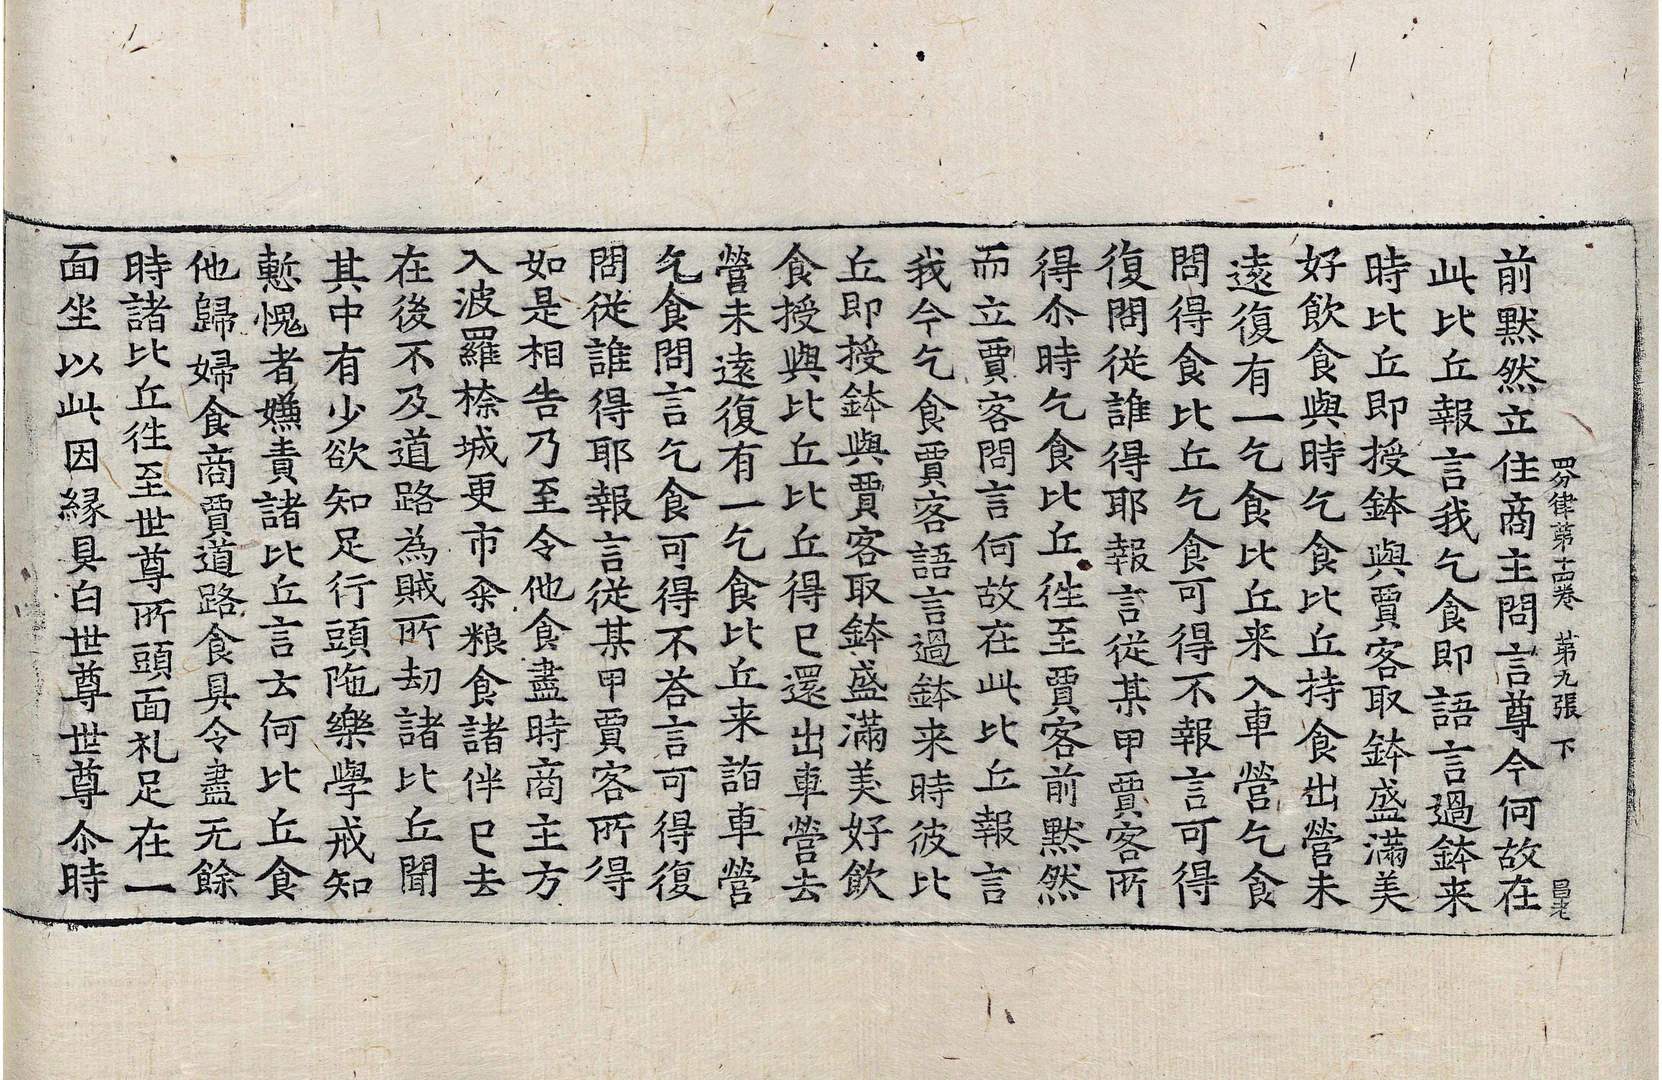 四分律第十四卷 第九張 下 昌老
前黙然立住商主問言尊今何故在
此比丘報言我乞食即語言過鉢来
時比丘即授鉢與賈客取鉢盛滿美
好飲食與時乞食比丘持食出營未
遠復有一乞食比丘来入車營乞食
問得食比丘乞食可得不報言可得
復問從誰得耶報言從某甲賈客所
得尒時乞食比丘徃至賈客前黙然
而立賈客問言何故在此比丘報言
我今乞食賈客語言過鉢来時彼比
丘即授鉢與賈客取鉢盛滿美好飲
食授與比丘比丘得已還出車營去
營未遠復有一乞食比丘来詣車營
乞食問言乞食可得不荅言可得復
問從誰得耶報言從某甲賈客所得
如是相告乃至令他食盡時商主方
入波羅㮈城更市籴粮食諸伴已去
在後不及道路為賊所劫諸比丘聞
其中有少欲知足行頭陁樂學戒知
慙愧者嫌責諸比丘言云何比丘食
他歸婦食商賈道路食具令盡无餘
時諸比丘徃至世尊所頭面礼足在一
面坐以此因縁具白世尊世尊尒時